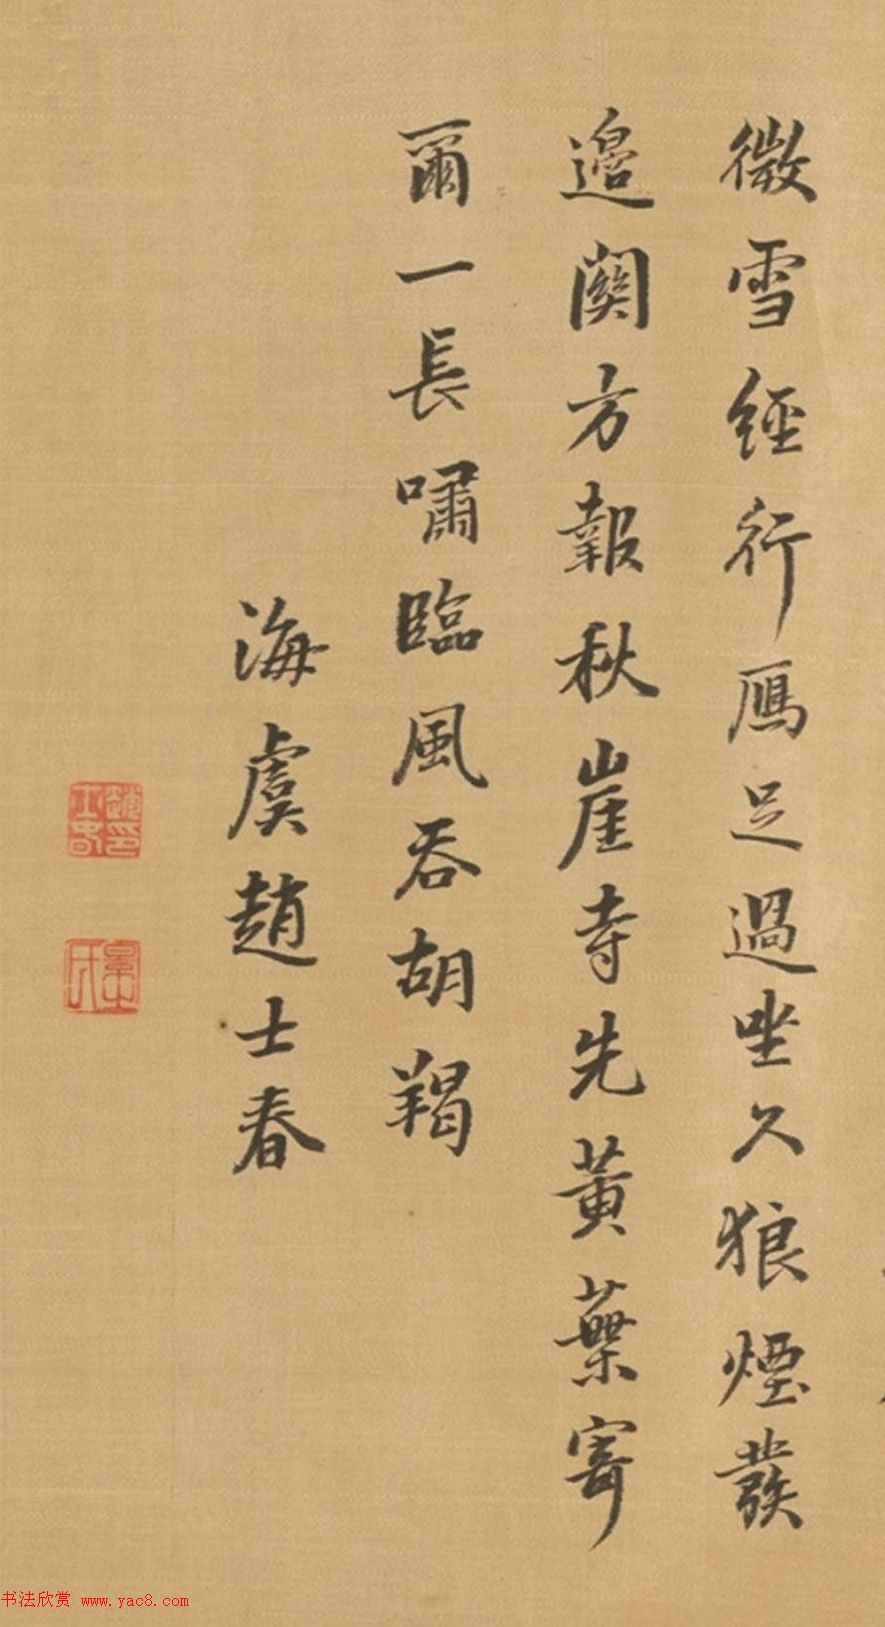 微雪經行鴈足過坐久狼煙發
邉關方報秋崖寺先黃葉寄
爾一長嘯臨風吞胡羯
海虞趙士春
趙士春印
景之氏
书法欣赏 www.yac8.com